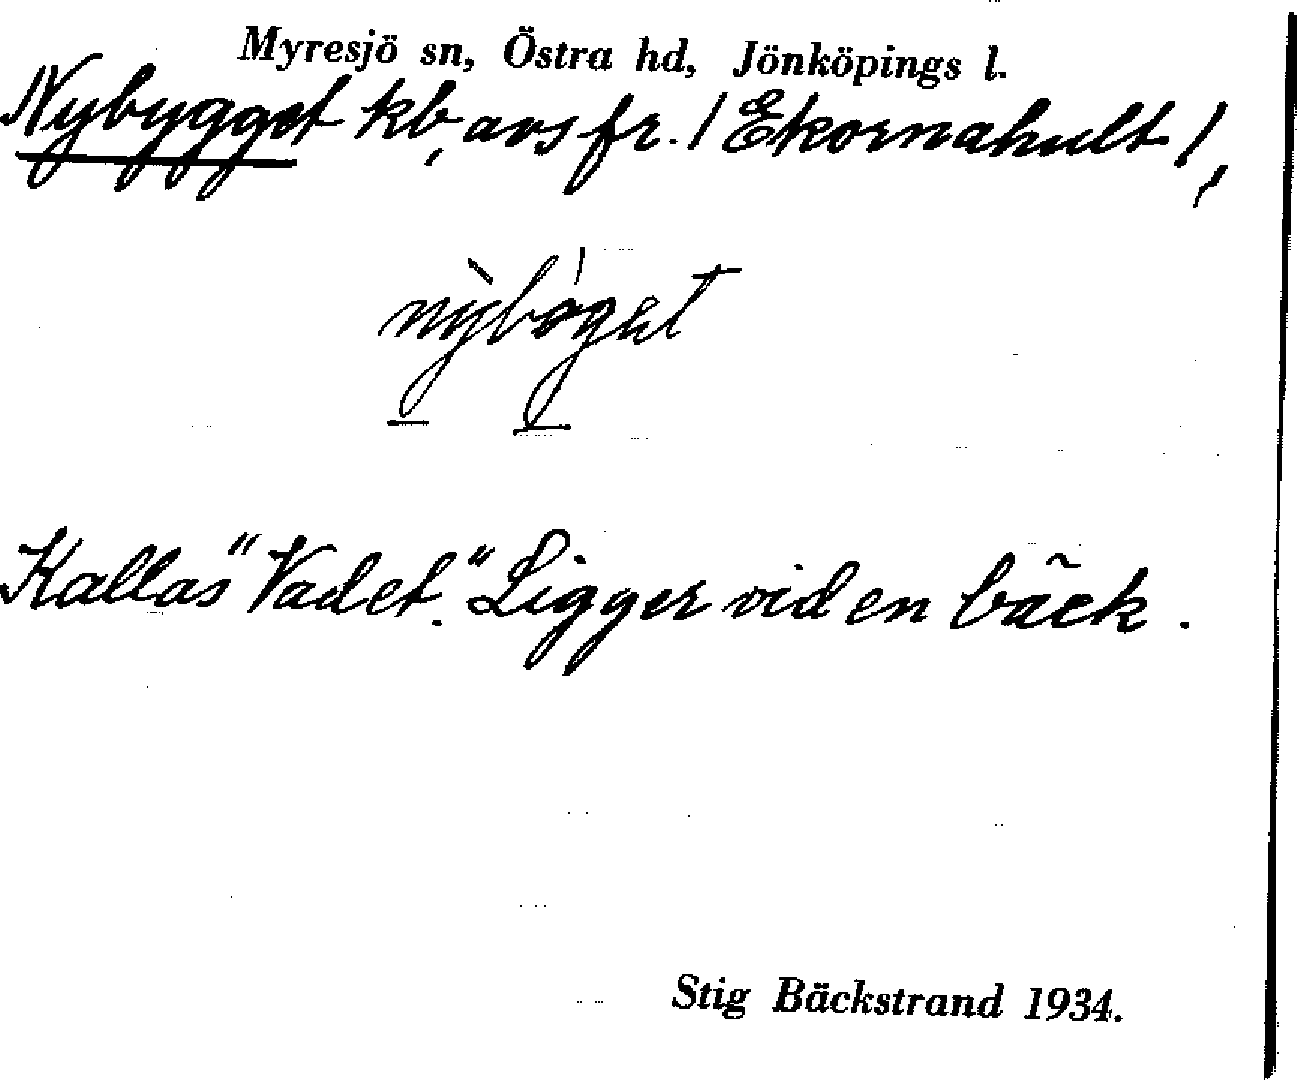 Myresjö sn, Östra hd, Jönköpings l.
Nybygget kb, avs fr. / Ekornahult /,
nỳbǿget
Kallas "Vadet." Ligger vid en bäck.
Stig Bäckstrand 1934.